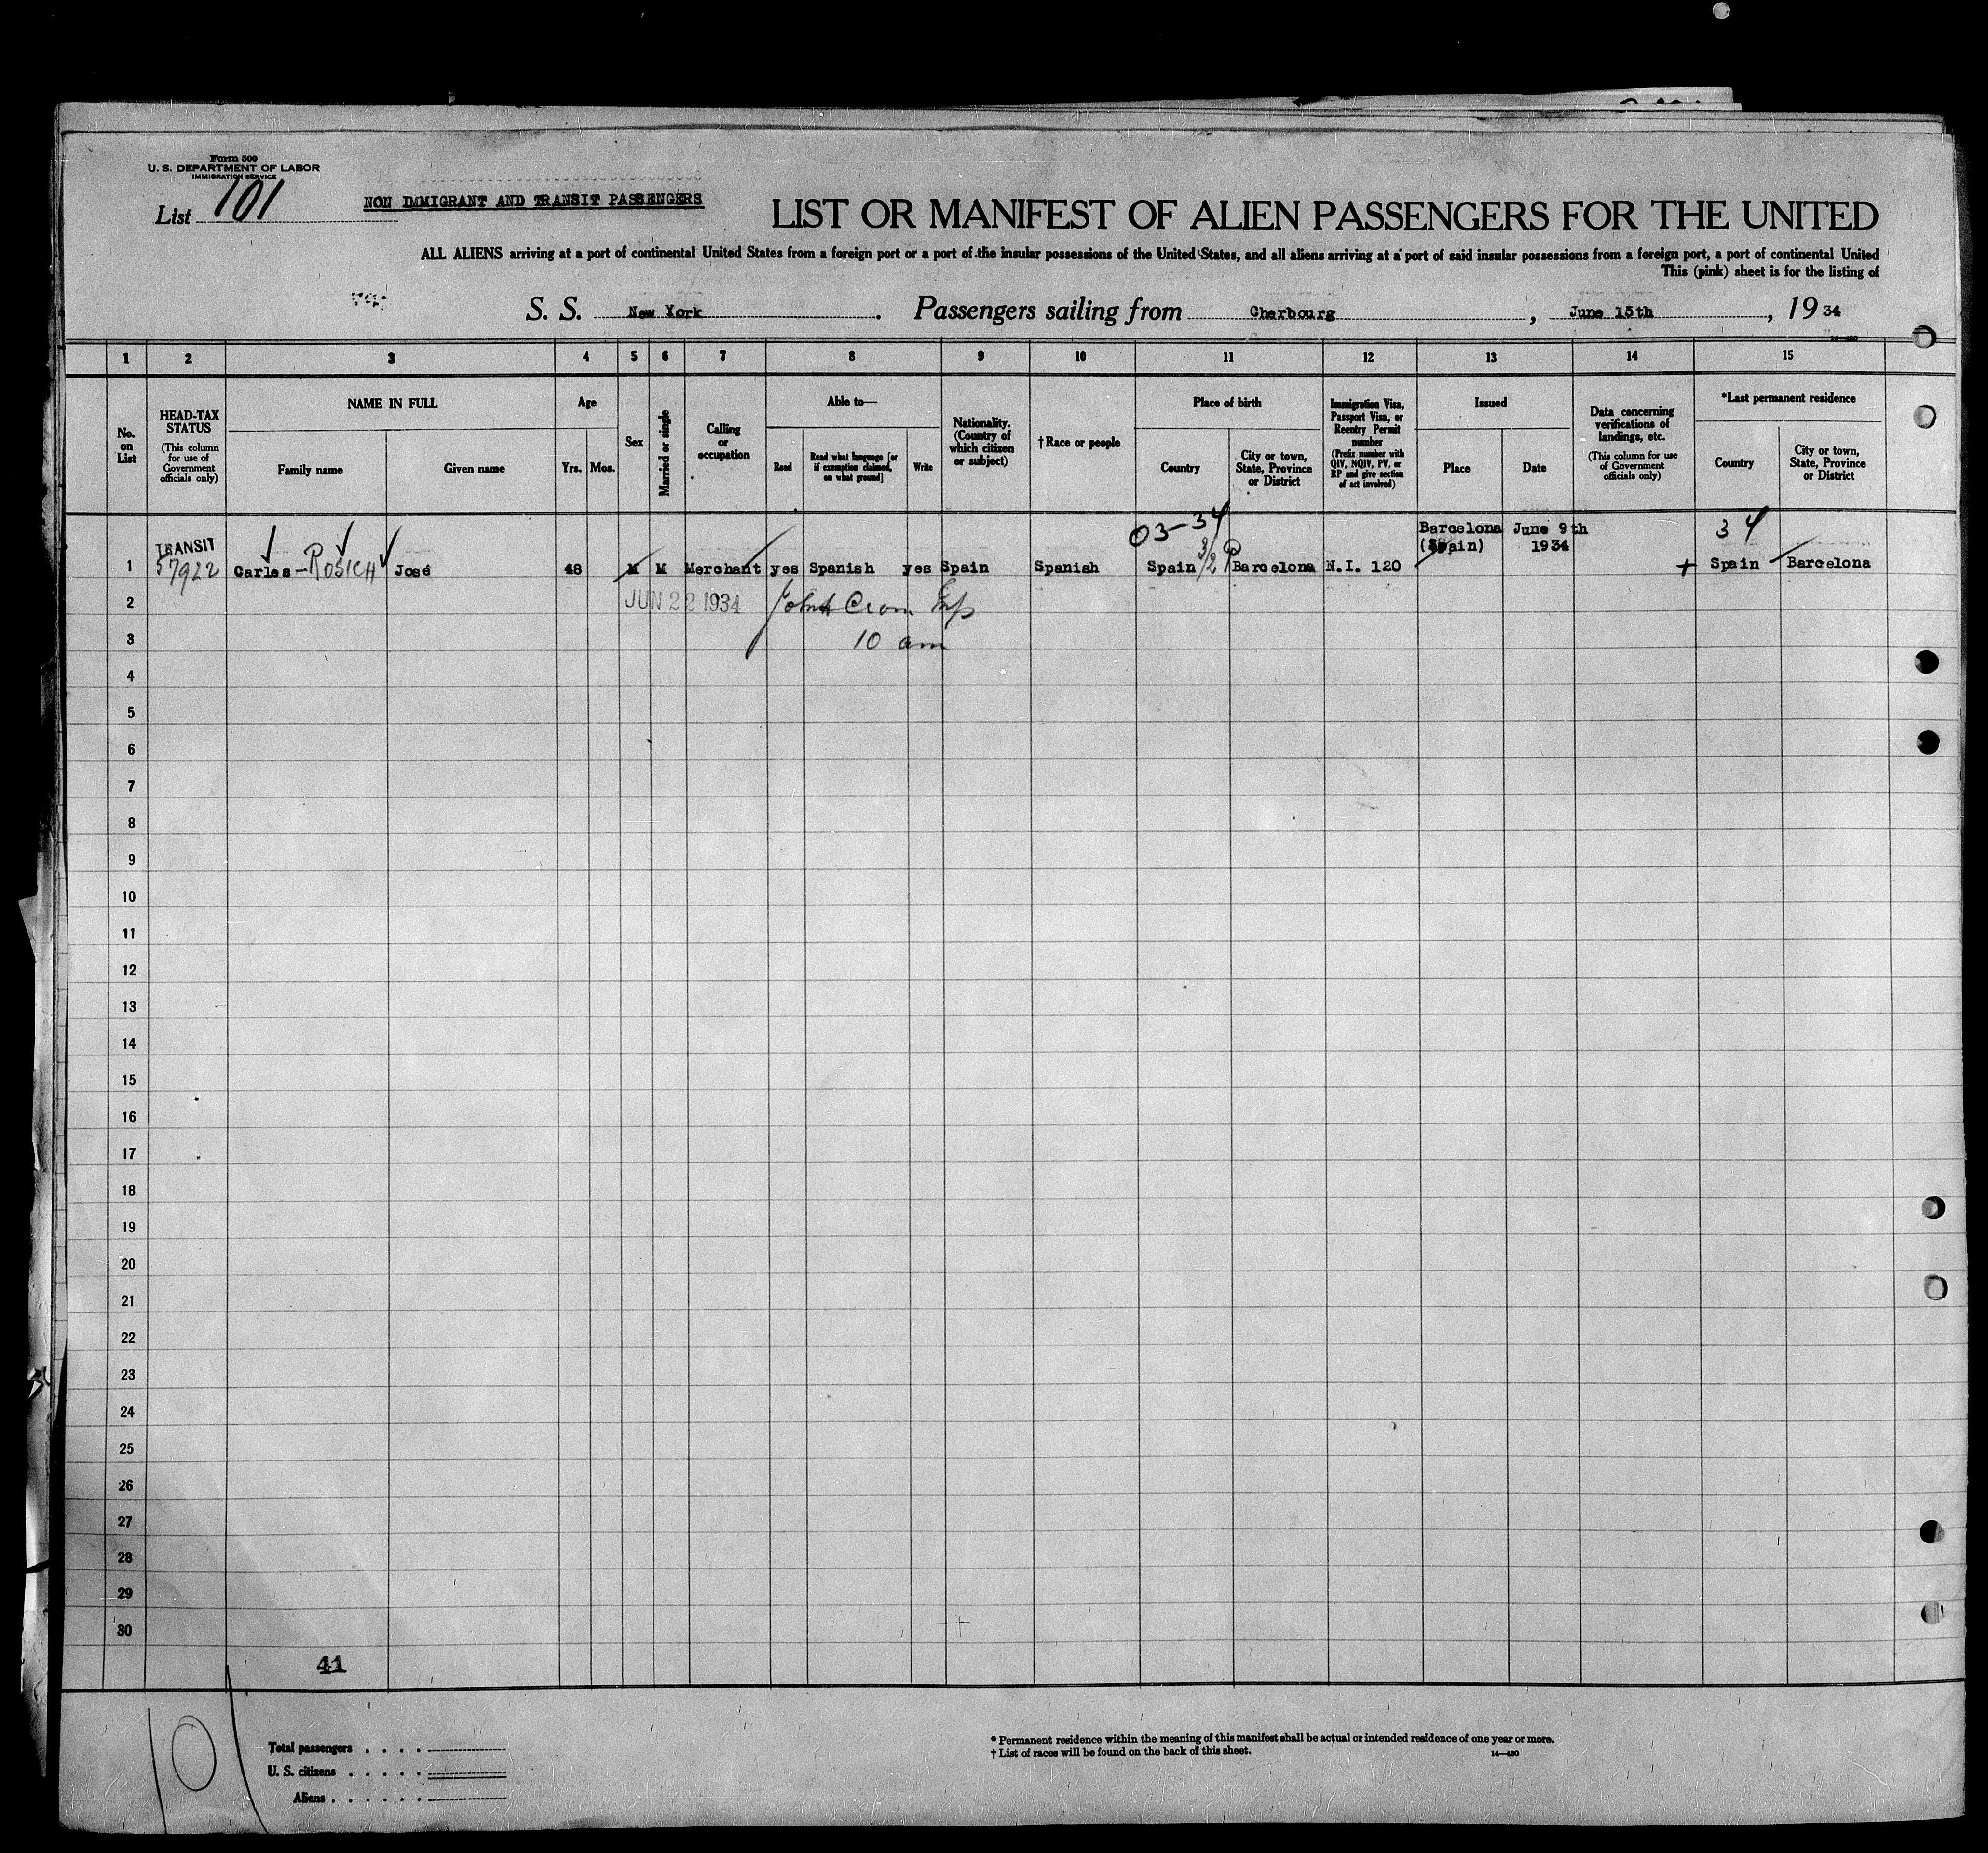 Form 500
U. S. DEPARTMENT OF LABOR
IMMIGRATION SERVICE
List 101
NON IMMIGRANT AND TRANSIT PASSENGERS
LIST OR MANIFEST OF ALIEN PASSENGERS FOR THE UNITED
ALL ALIENS arriving at a port of continental United States from a foreign port or a port of the insular possessions of the United States, and all aliens arriving at a port of said insular possessions from a foreign port, a port of continental United
This (pink) sheet is for the listing of
S. S. New York. Passengers sailing from Cherbourg, June 15th, 19 34
14—430
1 2 3 4 5 6 7 8 9 10 11 12 13 14 15
No. on List
HEAD-TAX STATUS
(This column for use of Government officials only)
NAME IN FULL
Family name
Given name
Age
Yrs. Mos.
Sex
Married or single
Calling or occupation
Able to—
Read
Read what language [or if exemption claimed, on what ground]
Write
Nationality. (Country of which citizen or subject)
†Race or people
Place of birth
Country
City or town, State, Province or District
Immigration Visa, Passport Visa, or Reentry Permit number
(Prefix number with QIV, NQIV, PV, or RP and give section of act involved)
Issued
Place
Date
Data concerning verifications of landings, etc.
(This column for use of Government officials only)
*Last permanent residence
Country
City or town, State, Province or District
03-34
Barcelona June 9th
34
TRANSIT
(Spain) 1934
1 57922 Carles - ROSICH José 48 M M Merchant yes Spanish yes Spain Spanish Spain 3/2 P Barcelona N.I. 120 + Spain Barcelona
2 JUN 22 1934 Insp
3 10 am
4
5
6
7
8
9
10
11
12
13
14
15
16
17
18
19
20
21
22
23
24
25
26
27
28
29
30
41
101
Total passengers . . . .
U. S. citizens . . . . .
Aliens . . . . . .
* Permanent residence within the meaning of this manifest shall be actual or intended residence of one year or more.
† List of races will be found on the back of this sheet.
14—430